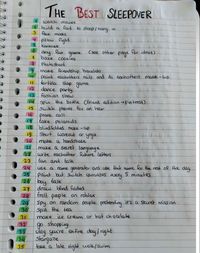 THE BEST SLEEPOVER
1 watch movies
2 build a fort to sleep/hang in
3 face masks
4 pillow fight
5 karaoke
6 any fun game (see other page for ideas)
7 bake cookies
8 Photoshoot
9 make friendship bracelets
10 paint each other's nails and do each other's make-up
11 bottle flip game
12 dance party
13 fashion show
14 spin the bottle
15 switch phones for an hour
16 prank call
17 take polaroids
18 blindfolded make-up
19 start workout or yoga
20 make a handshake
21 make a secret language
22 write each other future letters
23 fun deep talk
24 use a name generator and use that name for the rest of the day
25 paint but switch canvases every 5 minutes
26 boy talk
27 draw blind folded
28 troll people on roblox
29 spy on random people pretending it's a secret mission
30 spill the tea
31 make ice cream or hot chocolate
32 go shopping
33 vlog you're entire day/night
34 Stargaze
35 take a late night walk/swim